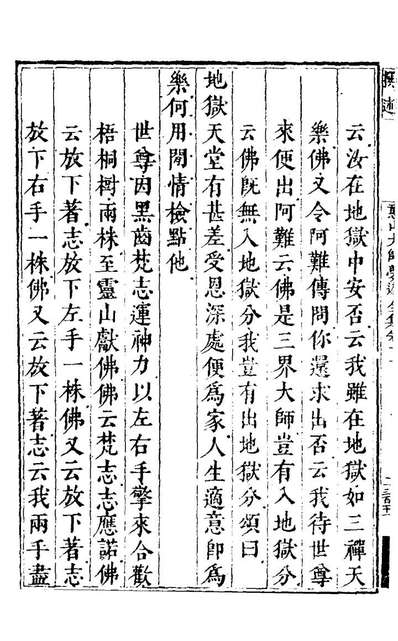 撰述
憨山大師夢遊全集卷二十
云汝在地獄中安否云我雖在地獄如三禪天
樂佛又令阿難傳問你還求出否云我待世尊
來便出阿難云佛是三界大師豈有入地獄分
云佛既無入地獄分我豈有出地獄分頌曰
地獄天堂有甚差受恩深處便為家人生適意即為
樂何用閒情檢點他
世尊因黑齒梵志運神力以左右手擎來合歡
梧桐樹兩株至靈山獻佛佛云梵志志應諾佛
云放下著志放下左手一株佛又云放下著志
放下右手一株佛又云放下著志云我兩手盡